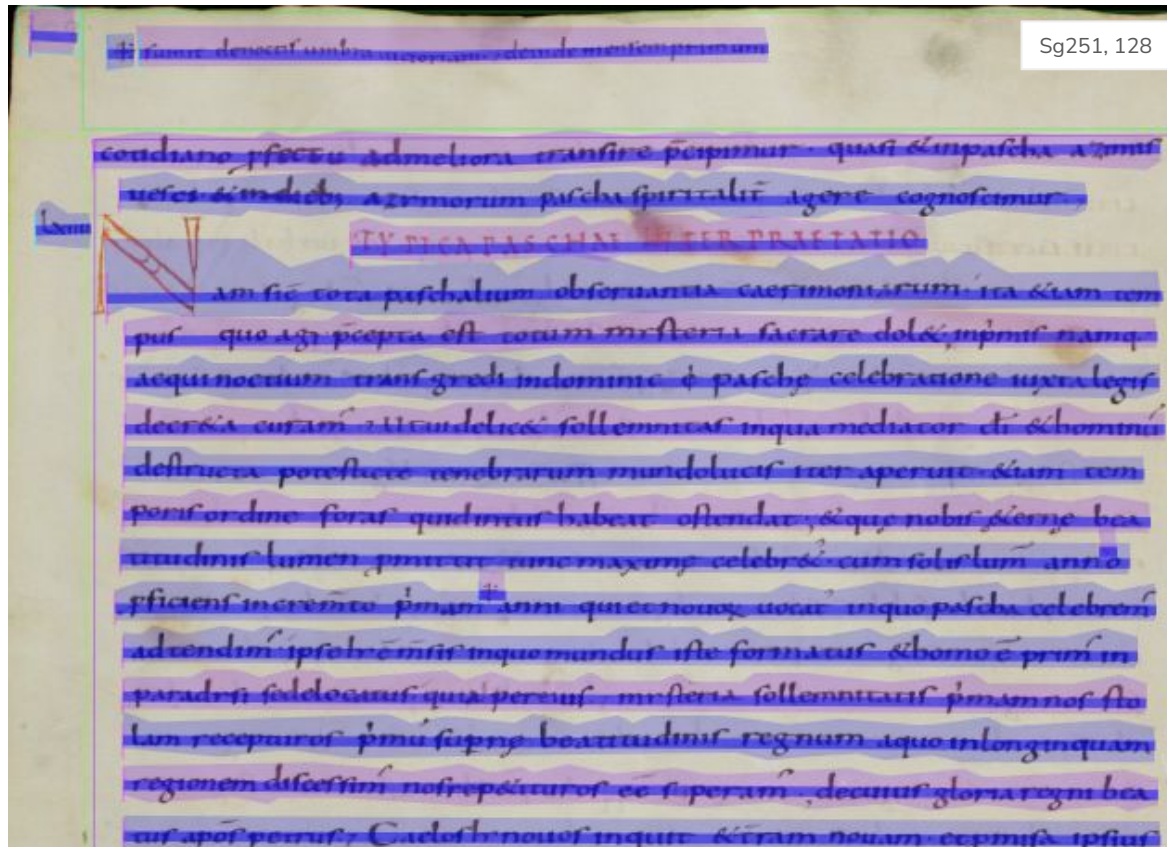 Sg251, 128
·i· sumit devotis umbra victoriam; deinde mensem primum
cotidiano ꝓfectu admeliora transire p̄cipimur · quasi &inpascha azimis
uesci · &indieb; azymorum pascha spiritalit̄ agere cognoscimur;
TYPICA PASCHAE INTERPRAETATIO
Nam sic̄ tota paschalium obseruantia caerimoniarum · ita &iam tem
pus quo agi p̄cepta est totum mysteria sacrare dol&; inp̄mis namq·
aequinoctium transgredi indominicę paschę celebratione iuxta legis
decr&a curam̄
sollemnitas inqua mediator d̄i &hominū
destructa potestate tenebrarum mundolucis iter aperuit · &iam tem
poris ordine foras quidintus habeat ostendat; &quę nobis &ernę bea
titudinis lumen ꝓmittit tunc maxime celebr&· cum solis lum̄ anno
ꝓficiens increm̄to p̄mam anni qui et nouoꝝ uocat̄ inquo pascha celebrem̄
adtendim̄ · ipse ē m̄sis inquo mundus iste formatus &homo ē prim̄ in
paradysi sedelocatus · quia per eius mysteria sollemnitatis p̄mam nos sto
lam recepturos p̄mū supnę beatitudinis regnum aquo inlonginquam
regionem discessim̄ nos rep&ituros eē speram̄, decuius gloria regni bea
tus apos̄ petrus; Caelos nouos inquit &t̄ram nouam · et ꝓmissa ipsius